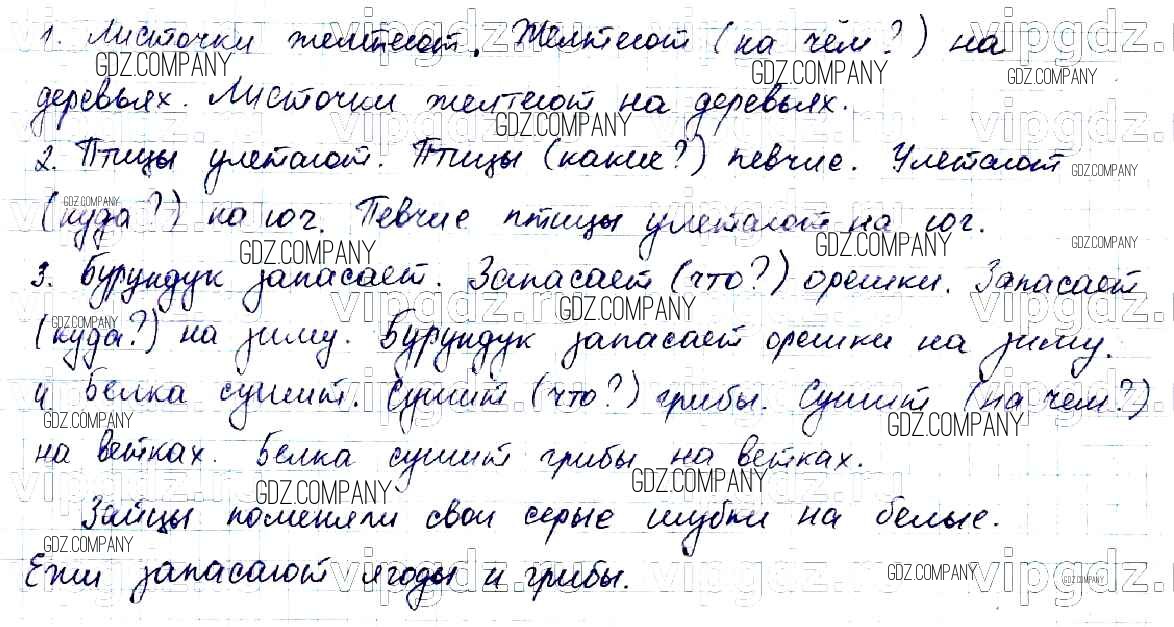 1. Листочки желтеют. Желтеют (на чём?) на
деревьях. Листочки желтеют на деревьях.
2. Птицы улетают. Птицы (какие?) певчие. Улетают
(куда?) на юг. Певчие птицы улетают на юг.
3. Бурундук запасает. Запасает (что?) орешки. Запасает
(куда?) на зиму. Бурундук запасает орешки на зиму.
4 Белка сушит. Сушит (что?) грибы. Сушит (на чем?)
на ветках. Белка сушит грибы на ветках.
Зайцы поменяли свои серые шубки на белые.
Ежи запасают ягоды и грибы.